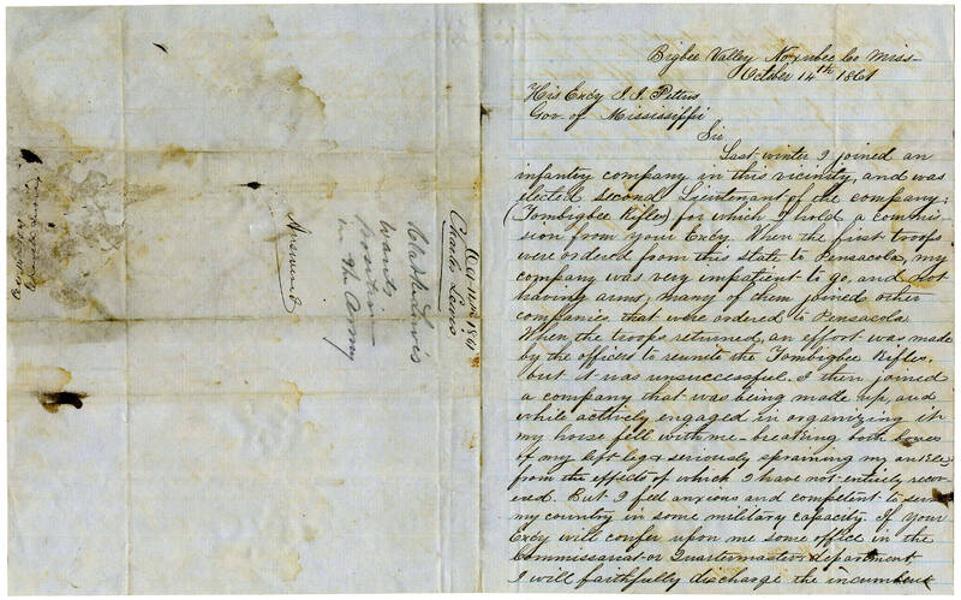 Bigbee Valley Noxubee Co Miss-
October 14th 1861
His Excy J. J. Pettus
Gov. of Mississippi
Sir
Last winter I joined an
infantry company in this vicinity, and was
elected second Lieutenant of the company;
(Tombigbee Rifles) for which I hold a commis-
sion from your Excy. When the first troops
were ordered from this state to Pensacola, my
company was very impatient to go, and not
having arms, many of them joined other
companies that were ordered to Pensacola.
When the troops returned, an effort was made
by the officers to reunite the Tombigbee Rifles,
but it was unsuccessful. I then joined
a company that was being made up, and
while actively engaged in organizing it
my horse fell with me- breaking both bones
of my left leg & seriously spraining my ankle;
from the effects of which I have not entirely recov-
ered. But I feel anxious and competent to serve
my country in some military capacity. If your
Excy will confer upon me some office in the
Commissariat or Quartermasters department,
I will faithfully discharge the incumbent
1861
Charles Lewis
Lewis
wants
position
in the Army
Answered